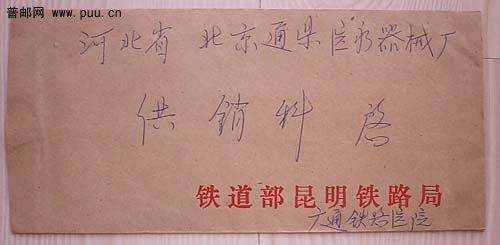 普邮网
www.puu.cn
河北省 北京通县医疗器械厂
供销科 启
铁道部昆明铁路局
广通铁路医院